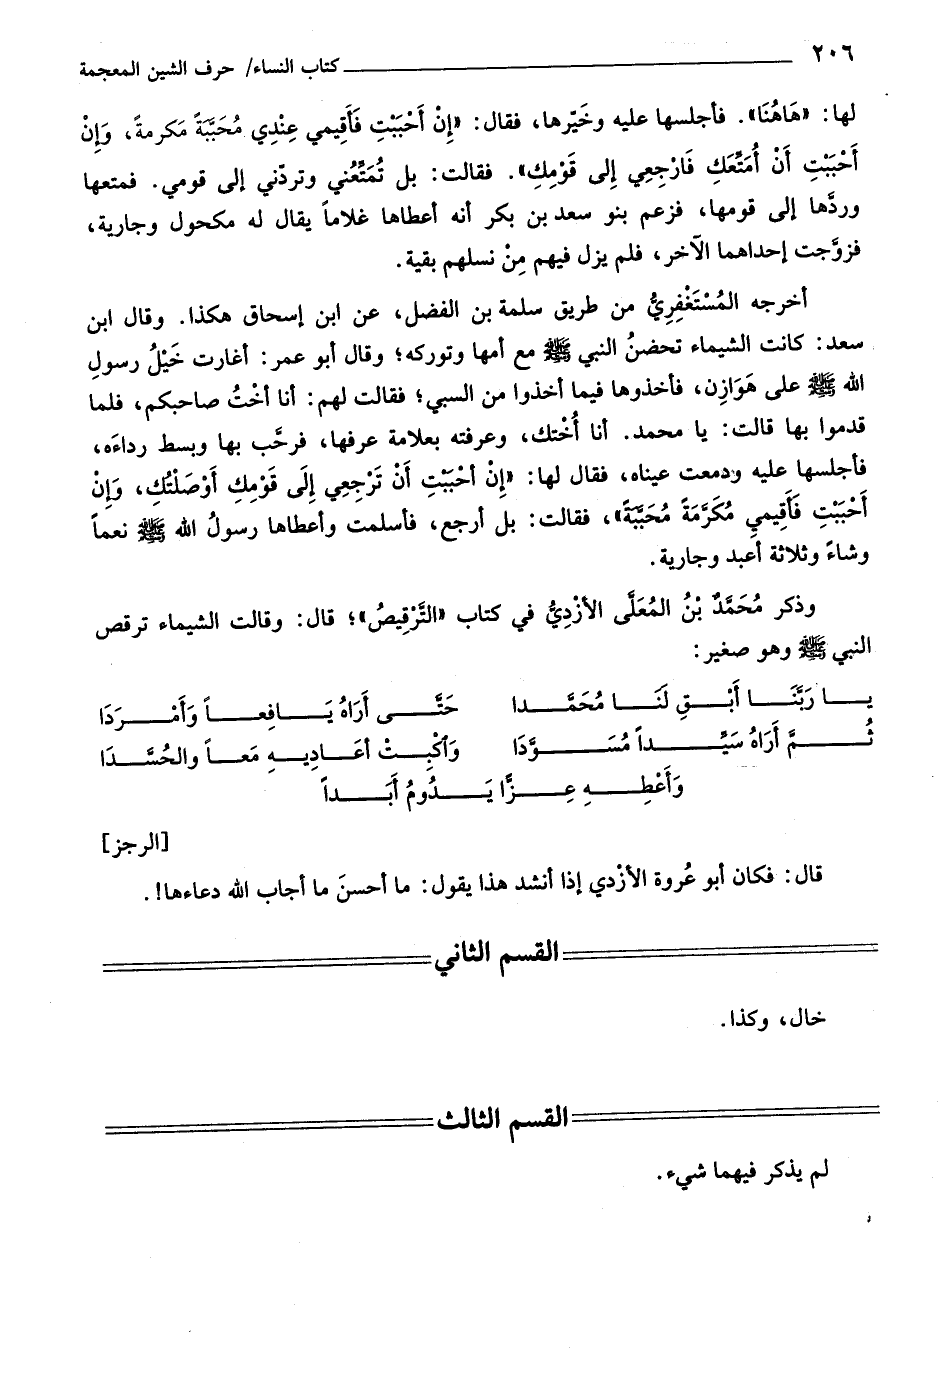 ٢٠٦ كتاب النساء/ حرف الشين المعجمة
لها: «هَاهُنَا». فأجلسها عليه وخَيّرها، فقال: «إِنْ أَحْبَبْتِ فَأَقِيمي عِنْدِي مُحَبَّبَةً مَكرمةً، وَإِنْ
أَحْبَبْتِ أَنْ أُمَتِّعَكِ فَارْجِعِي إِلى قَوْمِكِ». فقالت: بل تُمَتِّعُني وتردّني إلى قومي. فمتعها
وردَّها إلى قومها، فزعم بنو سعد بن بكر أنه أعطاها غلاماً يقال له مكحول وجارية،
فزوَّجت إحداهما الآخر، فلم يزل فيهم مِنْ نسلهم بقية.
أخرجه المُسْتَغْفِرِيُّ من طريق سلمة بن الفضل، عن ابن إسحاق هكذا. وقال ابن
سعد: كانت الشيماء تحضنُ النبي ﷺ مع أمها وتوركه؛ وقال أبو عمر: أغارت خَيْلُ رسولِ
الله ﷺ على هَوَازِن، فأخذوها فيما أخذوا من السبي؛ فقالت لهم: أنا أخْتُ صاحبكم، فلما
قدموا بها قالت: يا محمد. أنا أُخْتك، وعرفته بعلامة عرفها، فرحَّب بها وبسط رداءَه،
فأجلسها عليه ودمعت عيناه، فقال لها: «إِنْ أَحْبَبْتِ أَنْ تَرْجِعِي إِلَى قَوْمِكِ أَوْصَلْتُكِ، وَإِنْ
أَحْبَبْتِ فَأَقِيمِي مُكَرَّمَةً مُحَبَّبَةً»، فقالت: بل أرجع، فأسلمت وأعطاها رسولُ الله ﷺ نعماً
وشاءً وثلاثة أعبد وجارية.
وذكر مُحَمَّدُ بْنُ المُعَلَّى الأزْدِيُّ في كتاب «التَّرْقِيصُ»؛ قال: وقالت الشيماء ترقص
النبي ﷺ وهو صغير:
يــا رَبَّنَــا أَبْــقِ لَنَــا مُحَمَّــدا حَتَّــى أَرَاهُ يَــافِعــاً وَأَمْــرَدَا
ثُــمَّ أَرَاهُ سَيِّــداً مُسَــوَّدَا وَاكْبِــتْ أَعَــادِيــهِ مَعــاً والحُسَّــدَا
وَأَعْطِــهِ عِــزًّا يَــدُومُ أَبَــداً
[الرجز]
قال: فكان أبو عُروة الأزْدي إذا أنشد هذا يقول: ما أحسنَ ما أجاب الله دعاءها!.
القسم الثاني
خال، وكذا.
القسم الثالث
لم يذكر فيهما شيء.